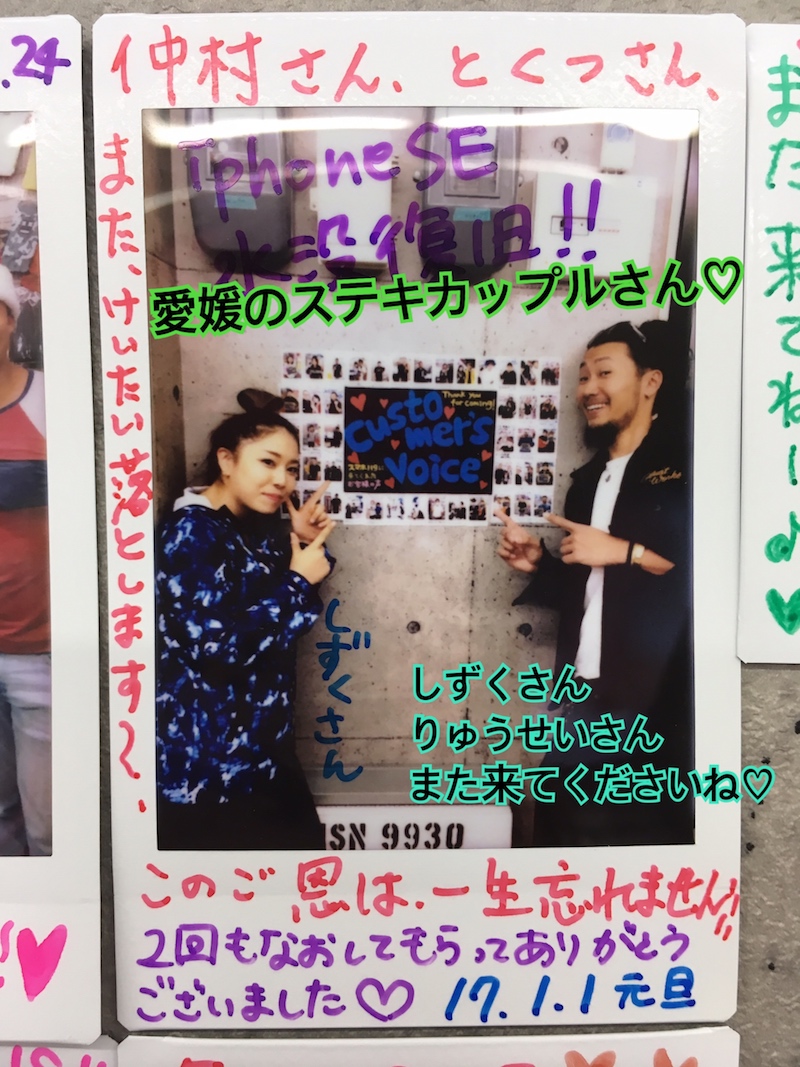 .24
仲村さん、とくっさん、
また、けいたい落とします〜、
iphoneSE
水没復旧!!
愛媛のステキカップルさん♡
Thank you
for coming!
Customer's
Voice
しずくさん
しずくさん
りゅうせいさん
また来てくださいね♡
ISN 9930
このご恩は、一生忘れません!!
2回もなおしてもらってありがとう
ございました♡ 17.1.1 元旦
また来てね!!♪♥